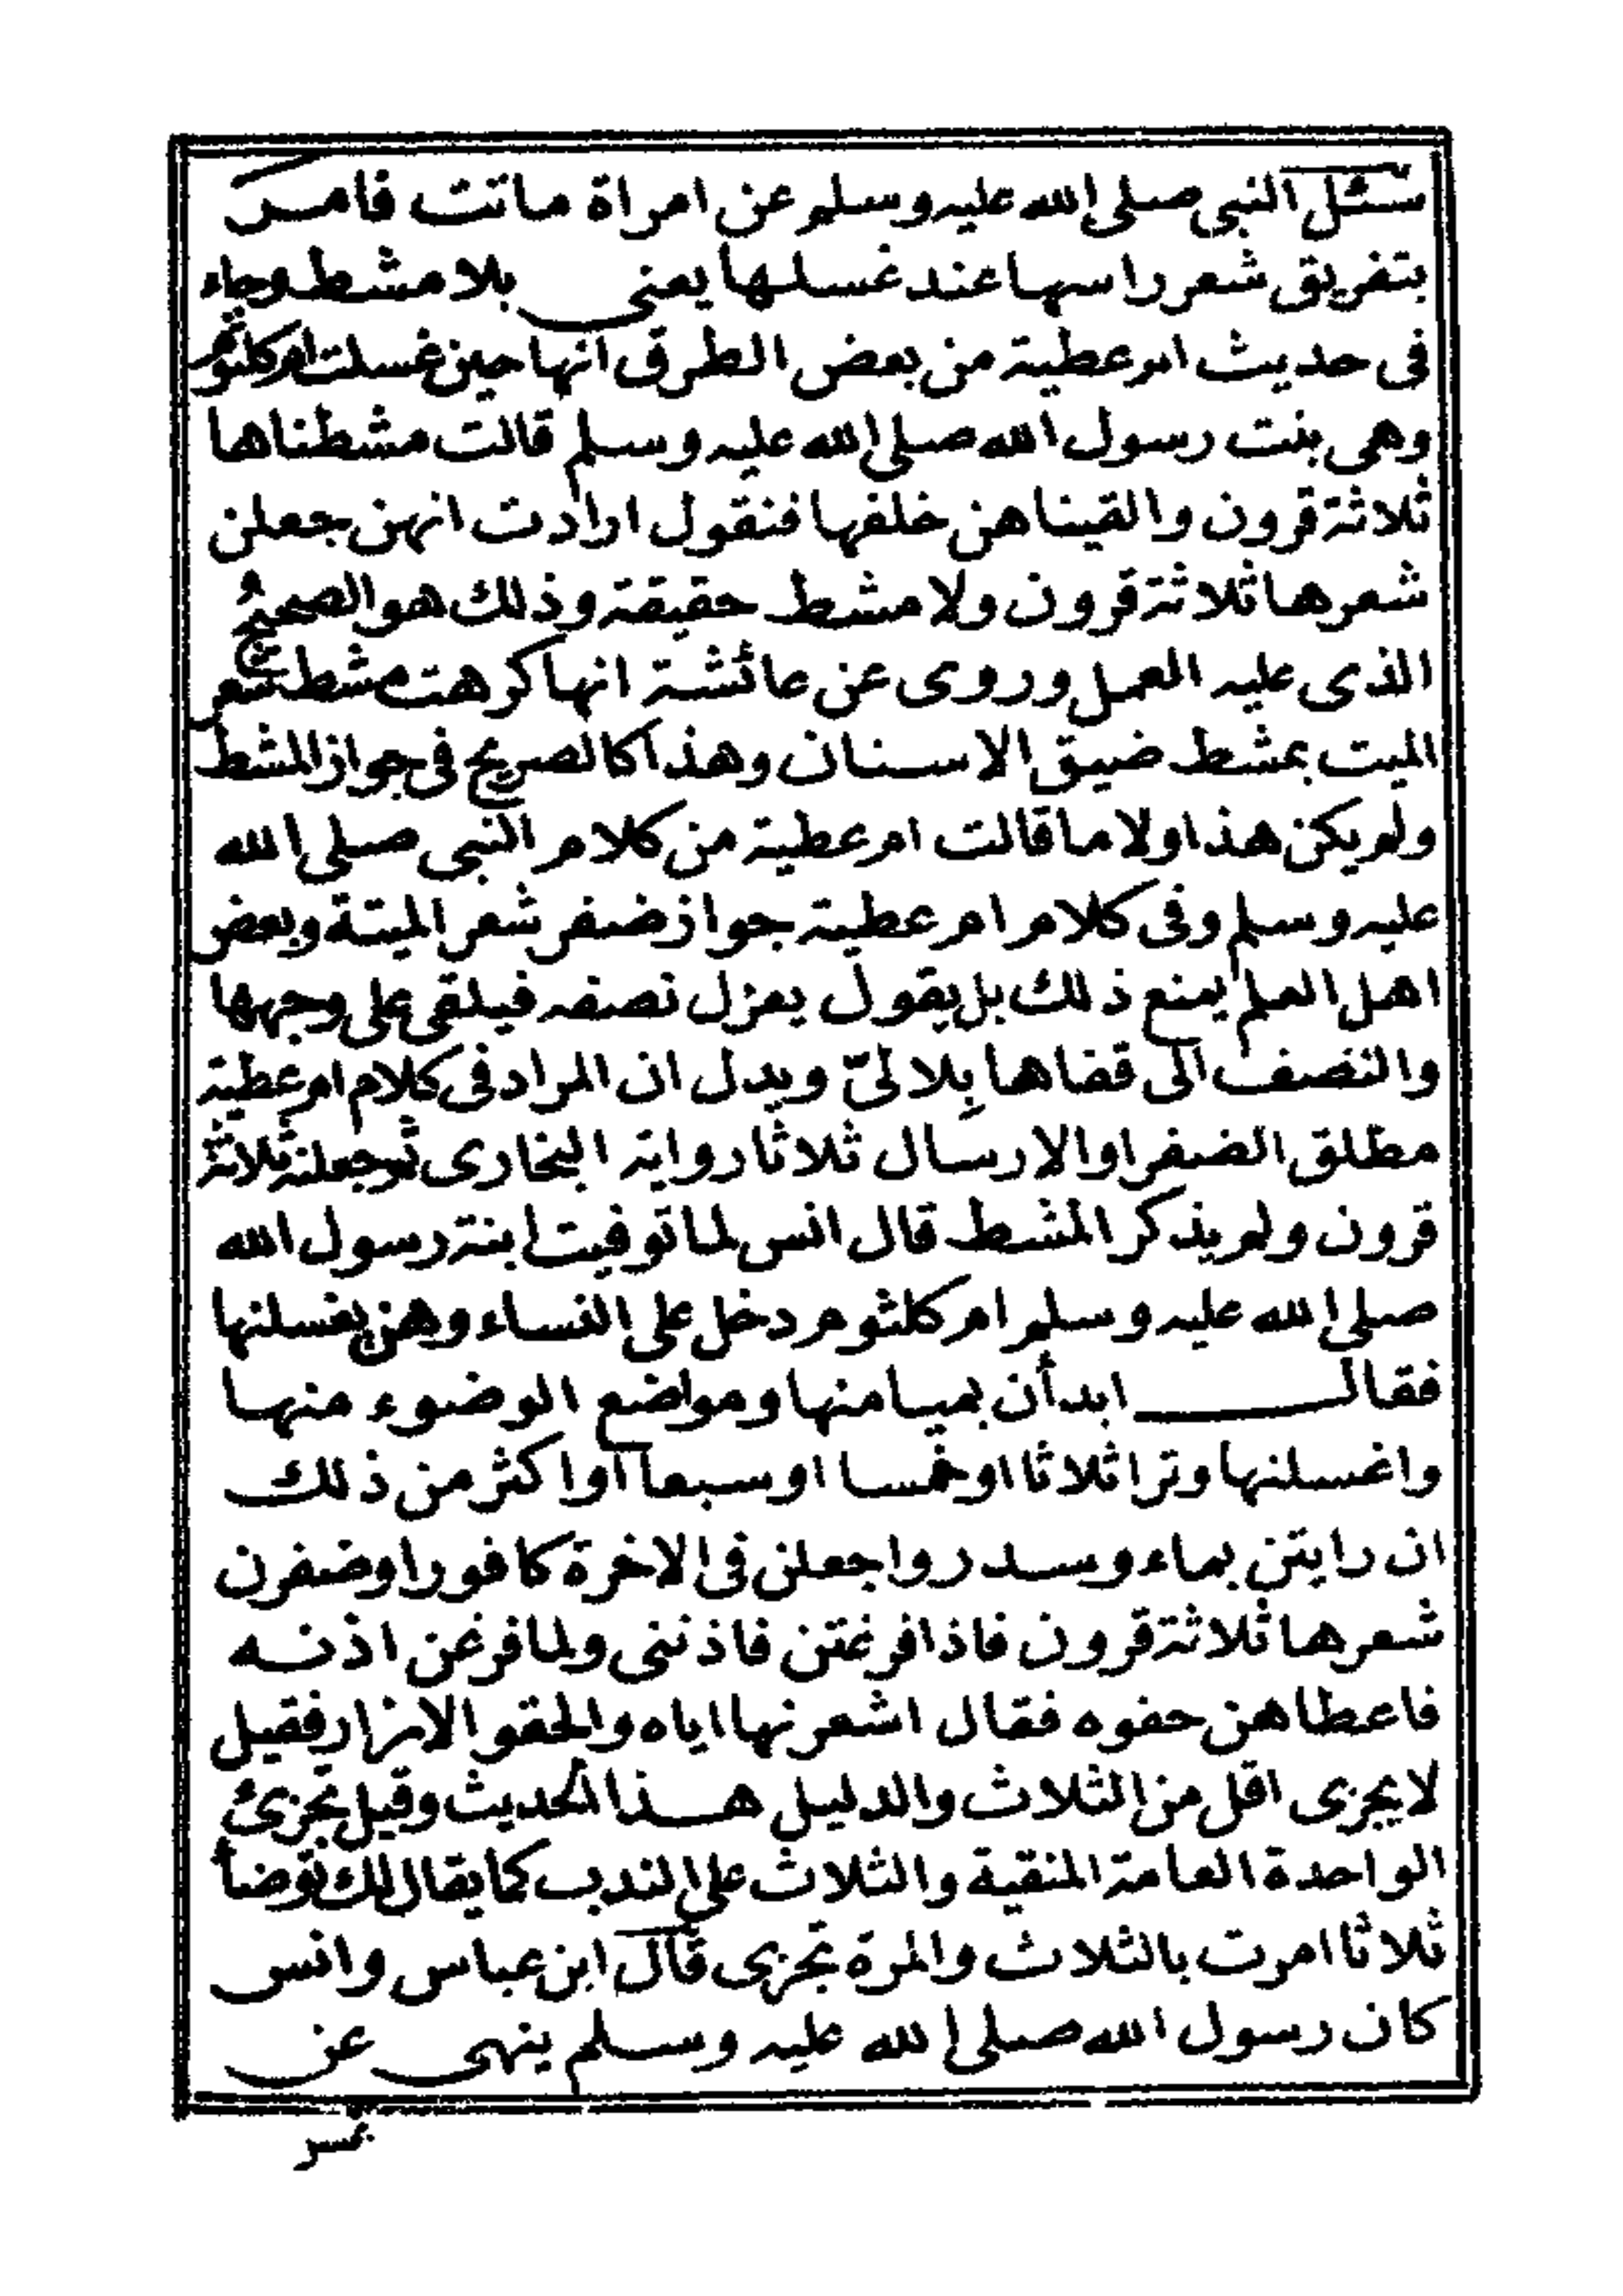 سئل النبي صلى الله عليه وسلم عن امراة ماتت فامر
بتفريق شعر راسها عند غسلها يعني بلا مشط وجاء
في حديث ام عطية من بعض الطرق انها حين غسلت ام كلثوم
وهي بنت رسول الله صلى الله عليه وسلم قالت مشطناها
ثلاثة قرون والقيناهن خلفها فنقول ارادت انهن جعلن
شعرها ثلاثة قرون ولا مشط حقيقة وذلك هو الصحيح
الذى عليه العمل وروى عن عائشة انها كرهت مشط شعر
الميت بمشط ضيق الاسنان وهذا كالصريح في جواز المشط
ولم يكن هذا ولا ما قالت ام عطية من كلام النبي صلى الله
عليه وسلم وفي كلام ام عطية جواز ضفر شعر الميتة وبعض
اهل العلم يمنع ذلك بل يقول يعزل نصفه فيلقى على وجهها
والنصف الى قفاها بِلا ليّ ويدل ان المراد في كلام ام عطية
مطلق الضفر او الارسال ثلاثا رواية البخارى ثم جعلنه ثلاثة
قرون ولم يذكر المشط قال انس لما توفيت ابنة رسول الله
صلى الله عليه وسلم ام كلثوم دخل على النساء وهن يغسلنها
فقال ابدأن بميامنها ومواضع الوضوء منها
واغسلنها وترا ثلاثا او خمسا او سبعا او اكثر من ذلك
ان رايتن بماء وسدر واجعلن في الاخرة كافورا وضفرن
شعرها ثلاثة قرون فاذا فرغتن فاذنني ولما فرغن اذنه
فاعطاهن حقوه فقال اشعرنها اياه والحقو الازار فقيل
لا يجزى اقل من الثلاث والدليل هذا الحديث وقيل تجزئ
الواحدة العامة المنقية والثلاث على الندب كما يقال لك توضأ
ثلاثا امرت بالثلاث والمرة تجزى قال ابن عباس وانس
كان رسول الله صلى الله عليه وسلم ينهى عن